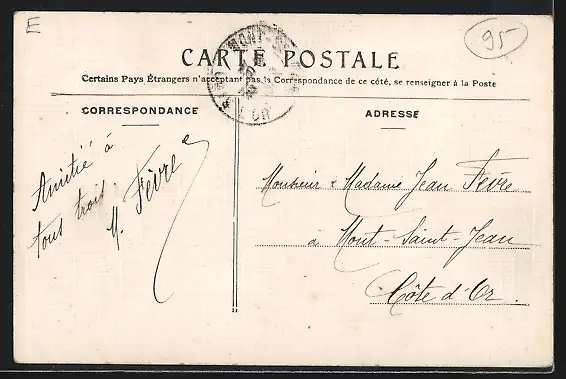 E
95
CARTE POSTALE
Certains Pays Étrangers n'acceptant pas la Correspondance de ce côté, se renseigner à la Poste
CORRESPONDANCE
ADRESSE
Amitié à
tous trois
M. Fèvre
Monsieur & Madame Jean Fèvre
à Mont-Saint-Jean
Côte d'Or.